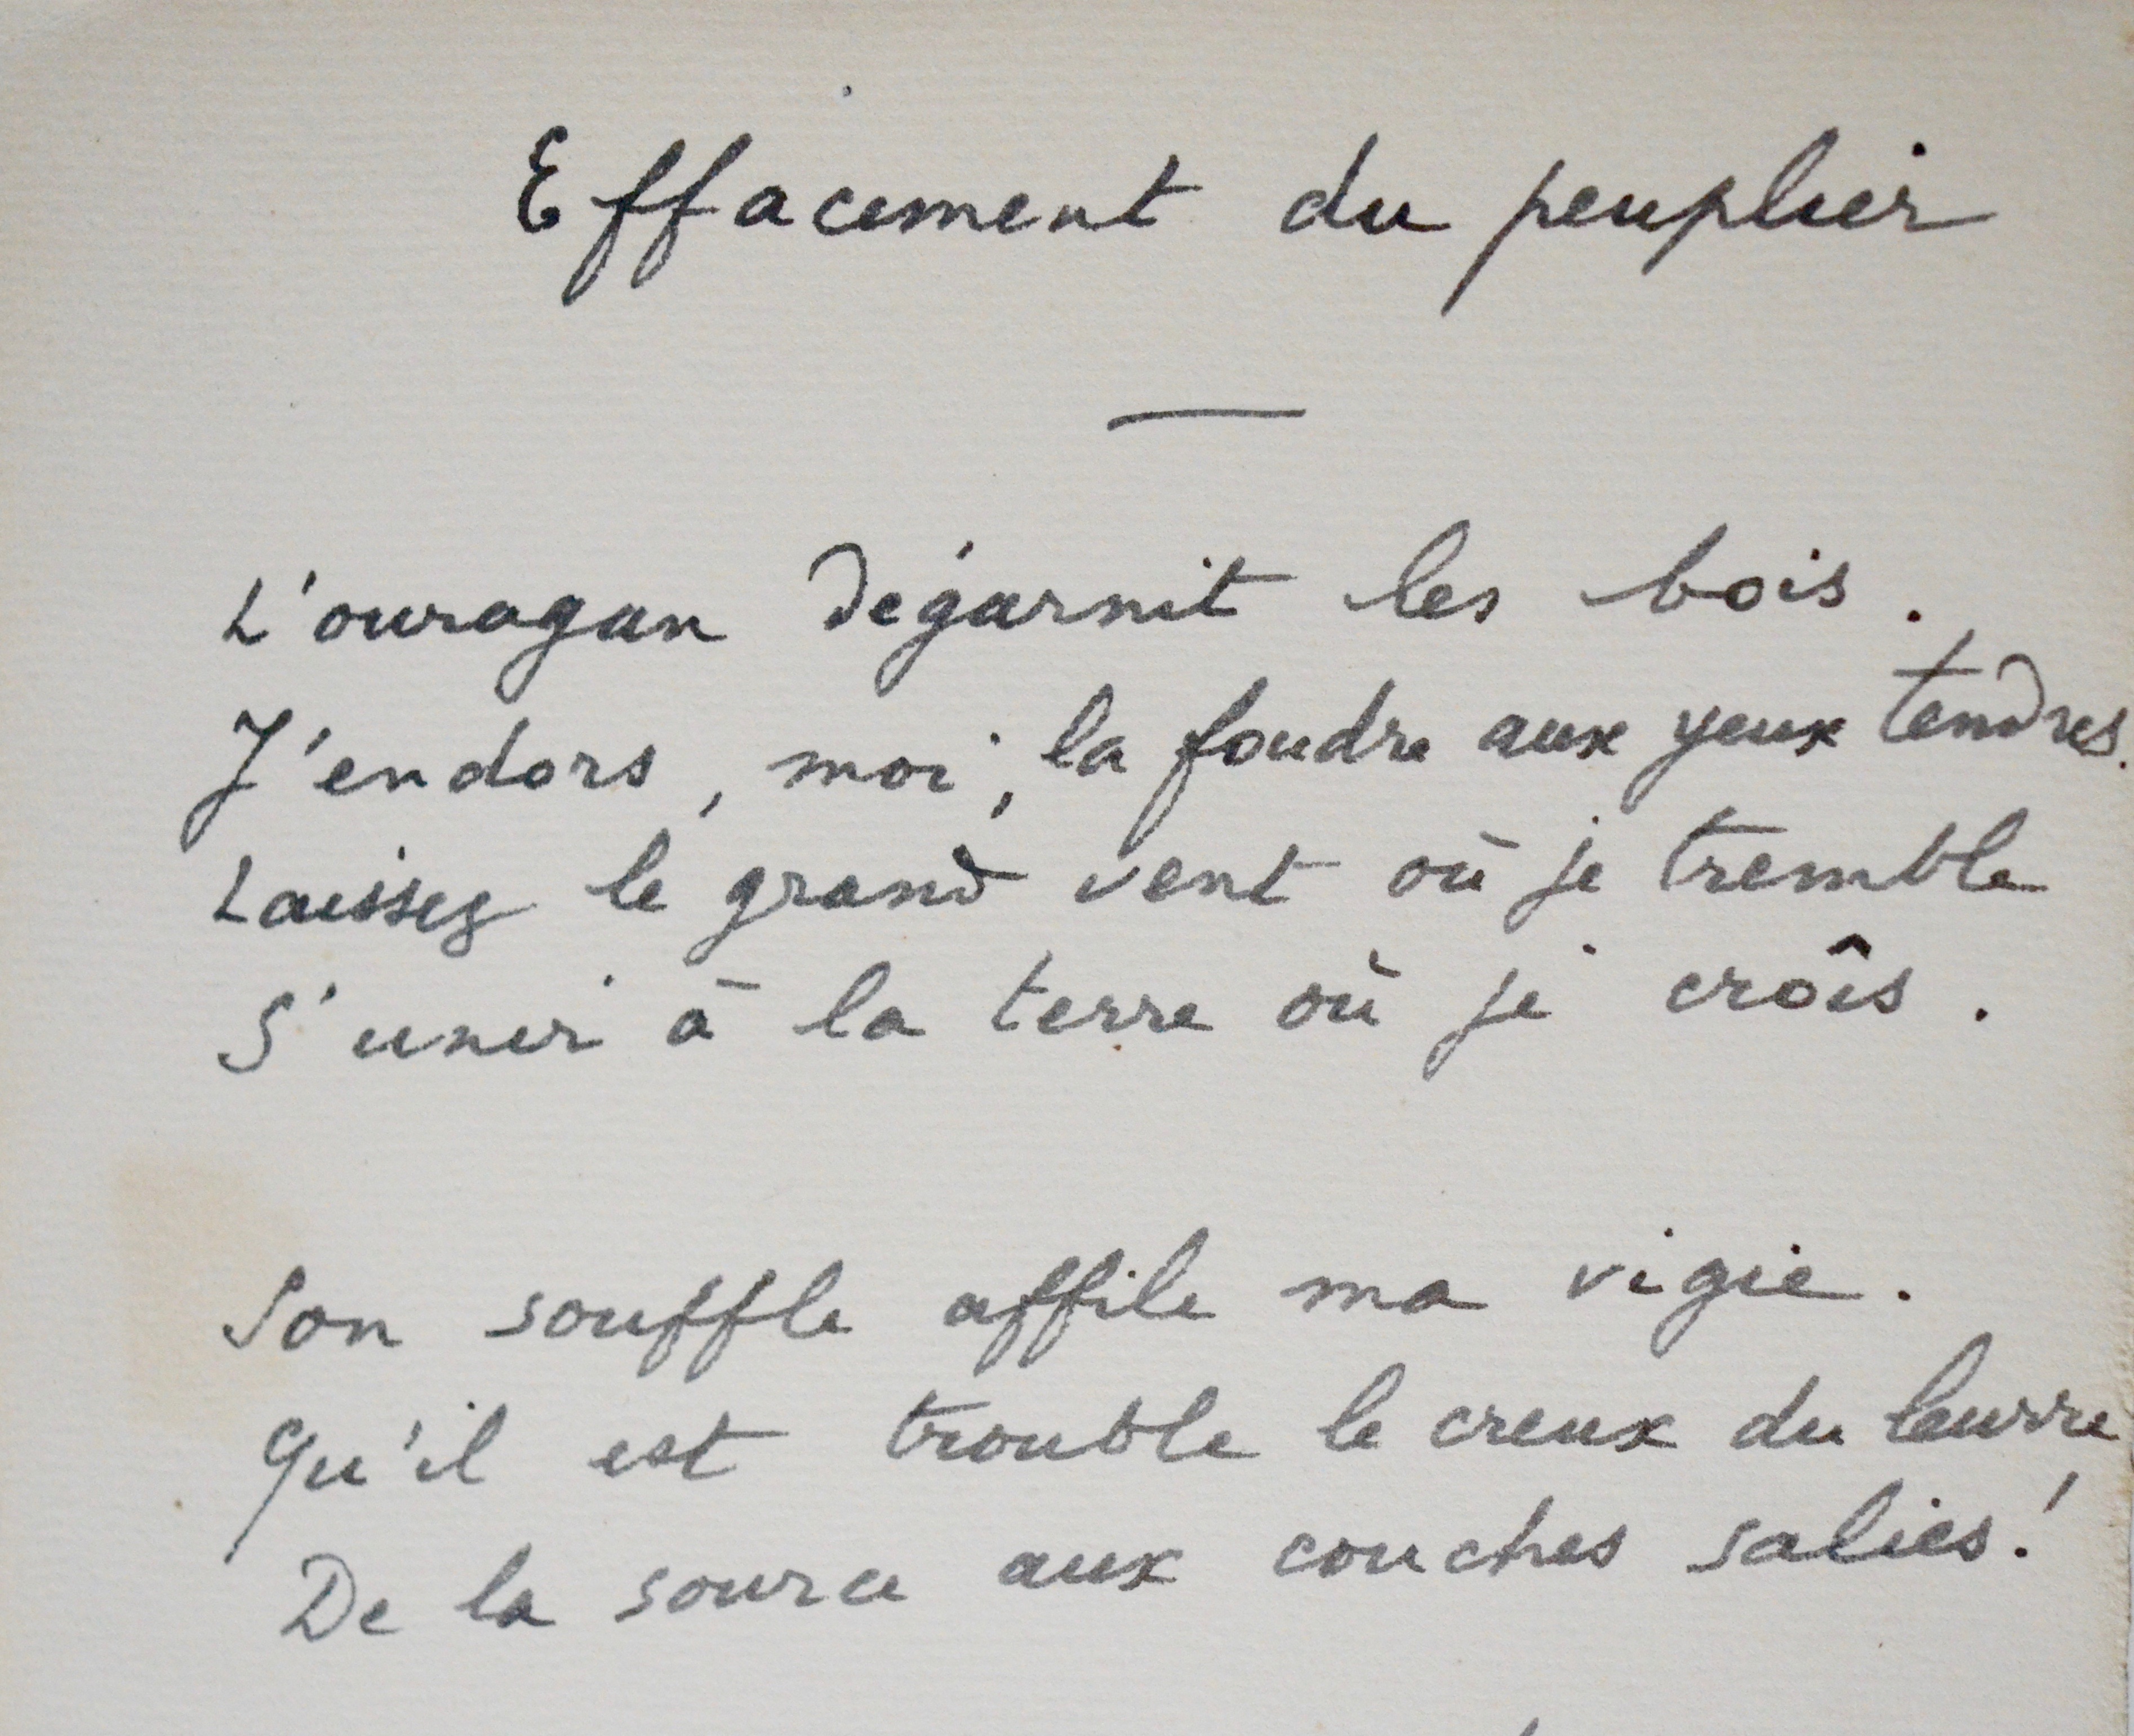 Effacement du peuplier
L'ouragan dégarnit les bois.
J'endors, moi, la foudre aux yeux tendres.
Laissez le grand vent où je tremble
S'unir à la terre où je croîs.
Son souffle affile ma vigie.
Qu'il est trouble le creux du leurre
De la source aux couches salies!